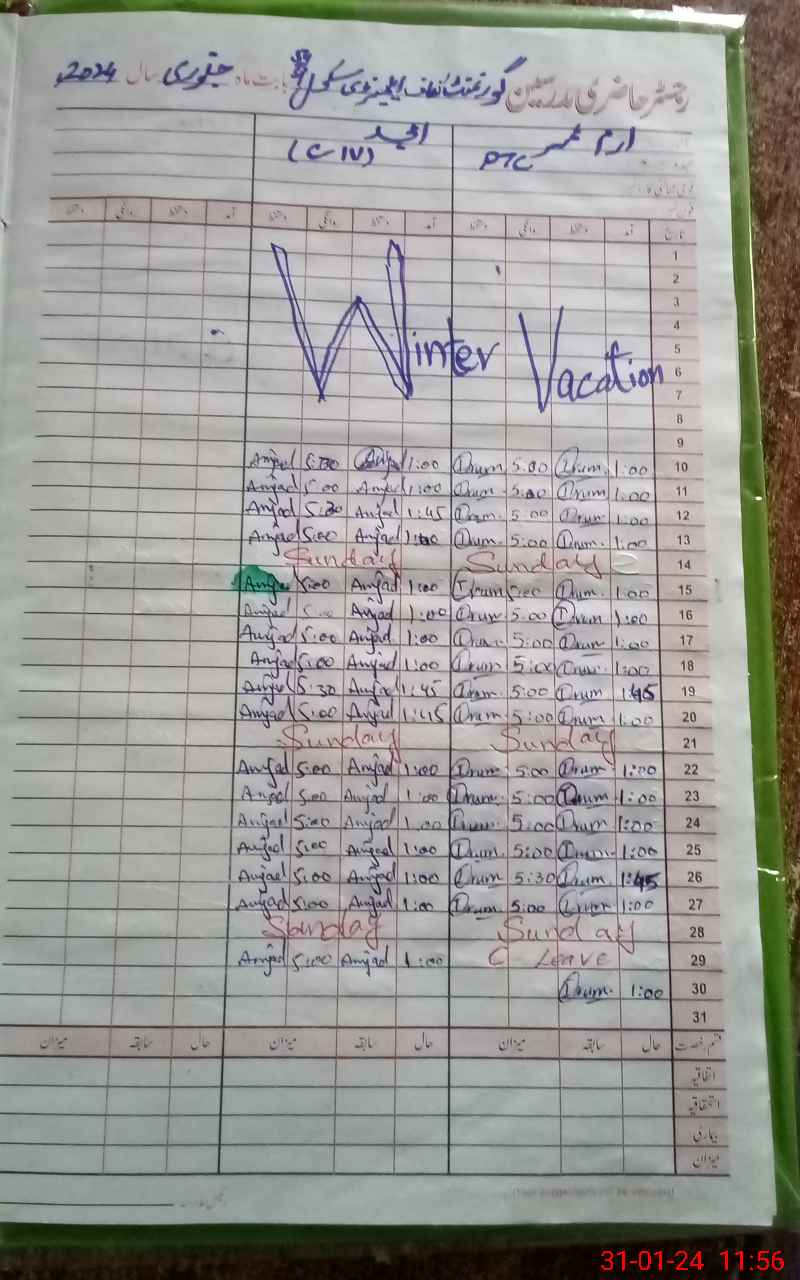 رجسٹر حاضری مدرسین گورنمنٹ ایلیمنٹری سکول بابت ماہ جنوری سال 2024ء
ارم PTC امجد (C IV)
تاریخ آمد دستخط روانگی دستخط آمد دستخط روانگی دستخط آمد دستخط روانگی دستخط
1
2
3
4
5
6
7
Winter Vacation
8
9
Amjad 5:30 Amjad 1:00 Irum 5:00 Irum 1:00 10
Amjad 5:00 Amjad 1:00 Irum 5:00 Irum 1:00 11
Amjad 5:30 Amjad 1:45 Irum 5:00 Irum 1:00 12
Amjad 5:00 Amjad 1:00 Irum 5:00 Irum 1:00 13
Sunday Sunday 14
Amjad 5:00 Amjad 1:00 Irum 5:00 Irum 1:00 15
Amjad 5:00 Amjad 1:00 Irum 5:00 Irum 1:00 16
Amjad 5:00 Amjad 1:00 Irum 5:00 Irum 1:00 17
Amjad 5:00 Amjad 1:00 Irum 5:00 Irum 1:00 18
Amjad 5:30 Amjad 1:45 Irum 5:00 Irum 1:45 19
Amjad 5:00 Amjad 1:45 Irum 5:00 Irum 1:00 20
Sunday Sunday 21
Amjad 5:00 Amjad 1:00 Irum 5:00 Irum 1:00 22
Amjad 5:00 Amjad 1:00 Irum 5:00 Irum 1:00 23
Amjad 5:00 Amjad 1:00 Irum 5:00 Irum 1:00 24
Amjad 5:00 Amjad 1:00 Irum 5:00 Irum 1:00 25
Amjad 5:00 Amjad 1:00 Irum 5:30 Irum 1:45 26
Amjad 5:00 Amjad 1:00 Irum 5:00 Irum 1:00 27
Sunday Sunday 28
Amjad 5:00 Amjad 1:00 C Leave 29
Irum 1:00 30
31
قسم رخصت حال سابقہ میزان حال سابقہ میزان حال سابقہ میزان
اتفاقیہ
استحقاقیہ
بیماری
میزان
31-01-24 11:56